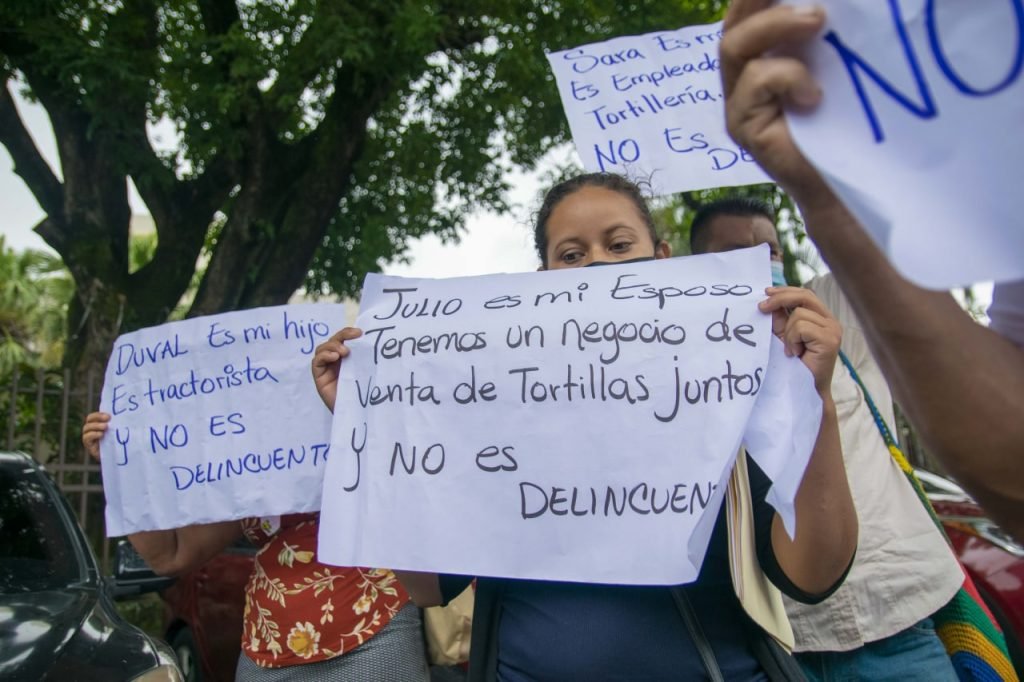 Sara Es mi
Es Empleada
Tortillería.
NO Es
NO
DUVAL Es mi hijo
Es tractorista
Y NO ES
JULIO es mi Esposo
Tenemos un negocio de
Venta de Tortillas juntos
y NO es